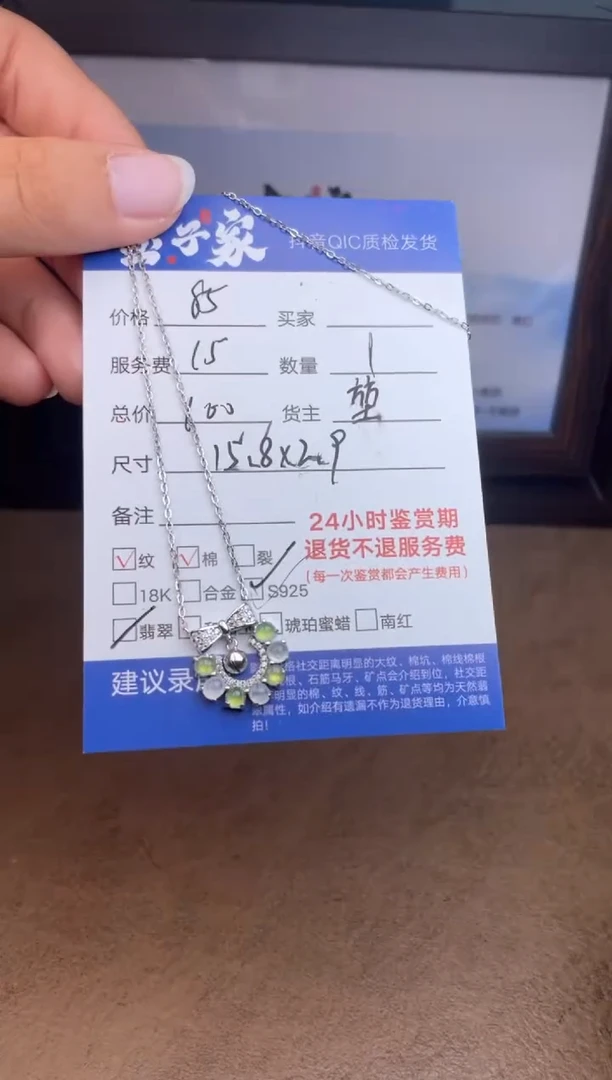 子家 抖音QIC质检发货
价格 85 买家
服务费 15 数量 1
总价 100 货主 堃
尺寸 15.8x2.9
备注
24小时鉴赏期
退货不退服务费
(每一次鉴赏都会产生费用)
纹 棉 裂
18K 合金 S925
翡翠 琥珀蜜蜡 南红
建议录
格社交距离明显的大纹、棉坑、棉线棉根
根、石筋马牙、矿点会介绍到位，社交距
明显的棉、纹、线、筋、矿点等均为天然翡
属性，如介绍有遗漏不作为退货理由，介意慎
拍！